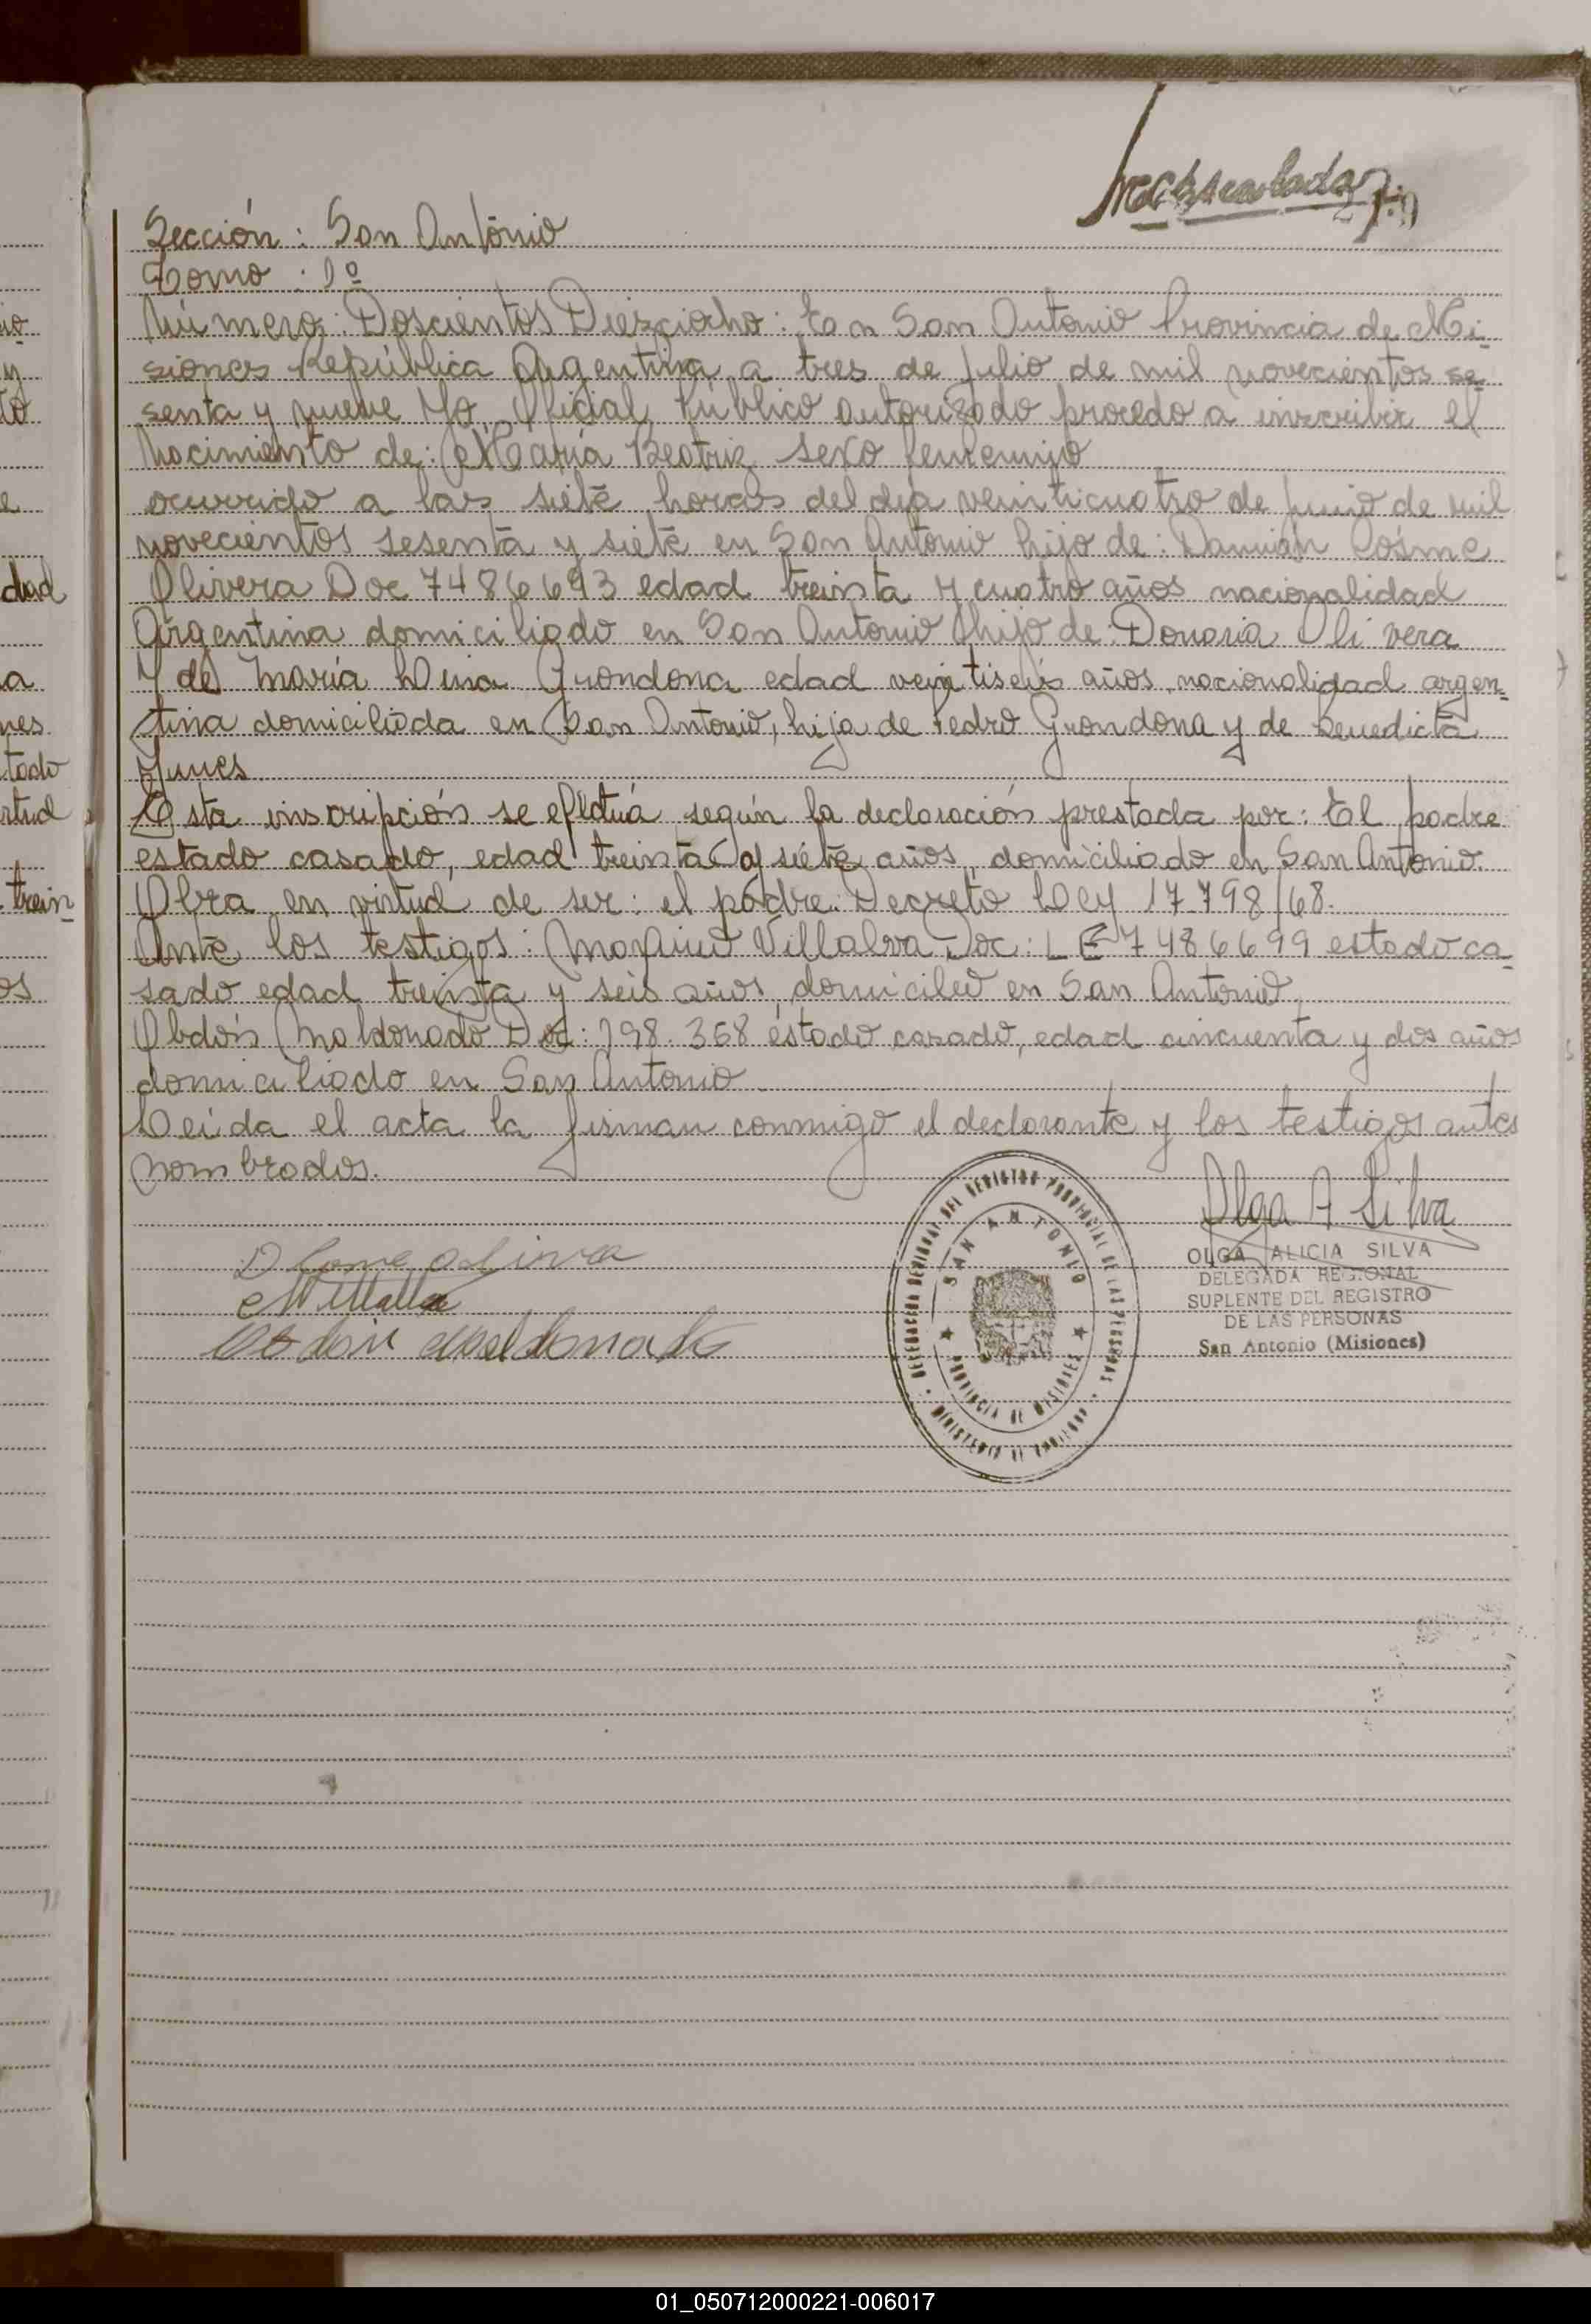 Sección: San Antonio
Tomo: 1º
Número: Doscientos Diezciocho: En San Antonio Provincia de Mi-
siones República Argentina a tres de Julio de mil novecientos se-
senta y nueve Yo, Oficial Público autorizado procedo a inscribir el
Nacimiento de: María Beatriz sexo femenino
ocurrido a las siete horas del día veinticuatro de junio de mil
novecientos sesenta y siete en San Antonio hijo de: Damián Cósme
Olivera Doc 7486693 edad treinta y cuatro años nacionalidad
Argentina domiciliado en San Antonio hijo de: Donaria Olivera
Y de María Grondona edad veintiseis años, nacionalidad argen-
tina domiciliada en San Antonio, hija de Pedro Grondona y de Benedicta
Yunes
Esta inscripción se efectúa según la declaración prestada por: El padre
estado casado, edad treinta y siete años, domiciliado en San Antonio.
Obra en virtud de ser: el padre. Decreto Ley 17.798/68.
Ante los testigos: Villalva Doc: L E 7486699 estado ca-
sado edad treinta y seis años, domicilio en San Antonio,
Obdón Maldonado Doc: 798.368 estado casado, edad cincuenta y dos años
domiciliado en San Antonio
Leída el acta la firman conmigo el declarante y los testigos antes
nombrados.
Olga A Silva
OLGA ALICIA SILVA
DELEGADA REGIONAL
SUPLENTE DEL REGISTRO
DE LAS PERSONAS
San Antonio (Misiones)
DELEGACION REGIONAL DEL REGISTRO PROVINCIAL DE LAS PERSONAS
SAN ANTONIO
PROVINCIA DE MISIONES
MINISTERIO DE GOBIERNO
D Cosme Olivera
MVillalva
Obdon Maldonado
dad
trein
01_050712000221-006017